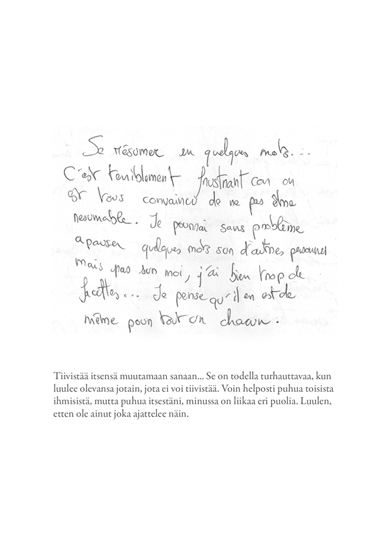 Se résumer en quelques mots...
C'est terriblement frustrant car on
est tous convaincu de ne pas être
resumable. Je pourrai sans problème
apauser quelques mots sur d'autres personnes
mais pas sur moi, j'ai bien trop de
facettes... Je pense qu'il en est de
même pour tout un chacun.
Tiivistää itsensä muutamaan sanaan... Se on todella turhauttavaa, kun
luulee olevansa jotain, jota ei voi tiivistää. Voin helposti puhua toisista
ihmisistä, mutta puhua itsestäni, minussa on liikaa eri puolia. Luulen,
etten ole ainut joka ajattelee näin.